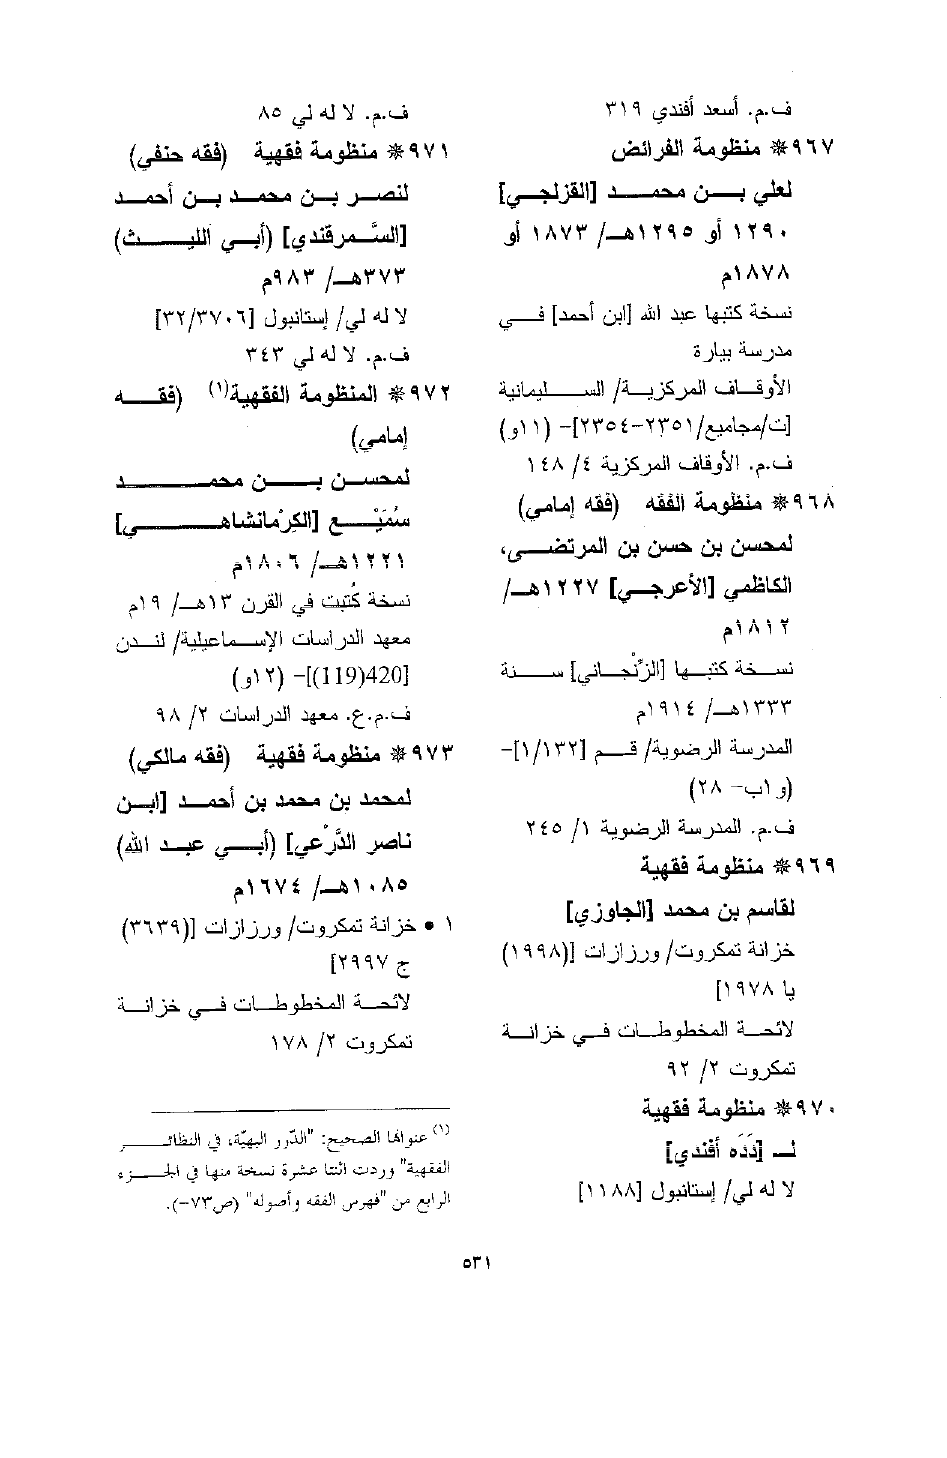 ف.م. أسعد أفندي ٣١٩
٩٦٧* منظومة الفرائض
لعلي بـن محمـد [القزلجـي]
١٢٩٠ أو ١٢٩٥هـ/ ١٨٧٣ أو
١٨٧٨م
نسخة كتبها عبد الله [ابن أحمد] فـي
مدرسة بيارة
الأوقاف المركزية/ السـليمانية
[ت/مجاميع/٢٣٥١-٢٣٥٤]- (١١و)
ف.م. الأوقاف المركزية ٤/ ١٤٨
٩٦٨* منظومة الفقه (فقه إمامي)
لمحسن بن حسن بن المرتضـى،
الكاظمي [الأعرجـي] ١٢٢٧هـ/
١٨١٢م
نسـخة كتبـها [الزِّنْجـاني] سـنة
١٣٣٣هـ/ ١٩١٤م
المدرسة الرضوية/ قـم [١/١٣٢]-
(و١ب- ٢٨)
ف.م. المدرسة الرضوية ١/ ٢٤٥
٩٦٩* منظومة فقهية
لقاسم بن محمد [الجاوزي]
خزانة تمكروت/ ورزازات [(١٩٩٨)
يا ١٩٧٨]
لائحـة المخطوطـات فـي خزانـة
تمكروت ٢/ ٩٢
٩٧٠* منظومة فقهية
لـ [دَدَه أفندي]
لا له لي/ إستانبول [١١٨٨]
ف.م. لا له لي ٨٥
٩٧١* منظومة فقهية (فقه حنفي)
لنصـر بـن محمـد بـن أحمـد
[السَّمرقندي] (أبـي الليـث)
٣٧٣هـ/ ٩٨٣م
لا له لي/ إستانبول [٣٢/٣٧٠٦]
ف.م. لا له لي ٣٤٣
٩٧٢* المنظومة الفقهية(١) (فقـه
إمامي)
لمحسـن بـن محمـد
سُمَيْـع [الكِرْمانشاهـي]
١٢٢١هـ/ ١٨٠٦م
نسخة كُتبت في القرن ١٣هـ/ ١٩م
معهد الدراسات الإسـماعيلية/ لندن
[420(119)]- (١٢و)
ف.م.ع. معهد الدراسات ٢/ ٩٨
٩٧٣* منظومة فقهية (فقه مالكي)
لمحمد بن محمد بن أحمـد [ابـن
ناصر الدَّرْعي] (أبـي عبـد الله)
١٠٨٥هـ/ ١٦٧٤م
١ • خزانة تمكروت/ ورزازات [(٣٦٣٩)
ج ٢٩٩٧]
لائحـة المخطوطـات فـي خزانـة
تمكروت ٢/ ١٧٨
(١) عنوانها الصحيح: "الدّرر البهيّة، في النظائـر
الفقهية" وردت اثنتا عشرة نسخة منها في الجـزء
الرابع من "فهرس الفقه وأصوله" (ص٧٣-).
٥٣١